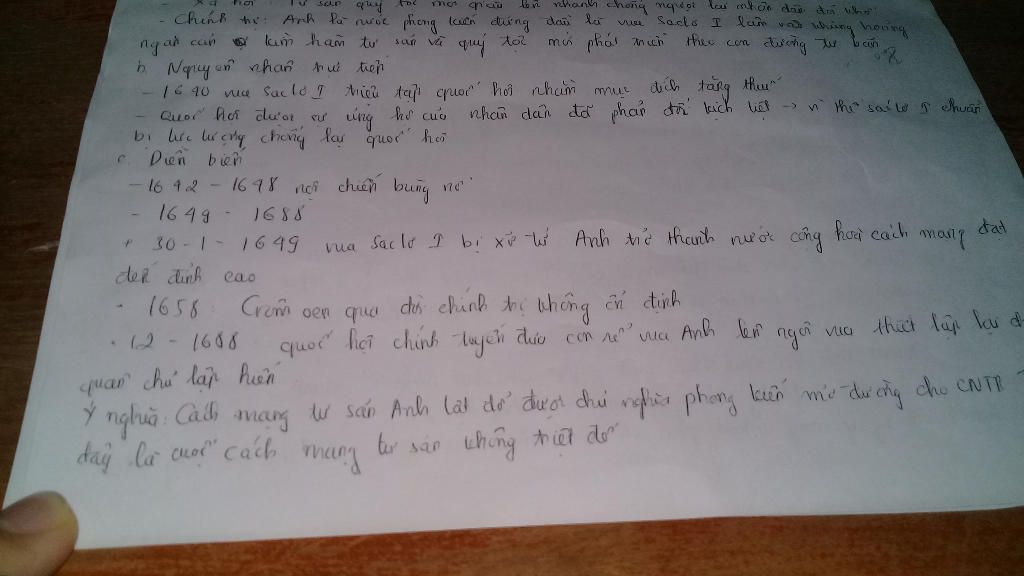 - Xã hội : Tư sản quý tộc mới giàu lên nhanh chóng ngược lại nhân dân đói khổ.
- Chính trị: Anh là nước phong kiến đứng đầu là vua Saclơ I lâm vào khủng hoảng
ngăn cản kìm hãm tư sản và quý tộc mới phát triển theo con đường tư bản
b. Nguyên nhân trực tiếp
- 1640 vua Saclơ I triệu tập quốc hội nhằm mục đích tăng thuế
- Quốc hội được sự ủng hộ của nhân dân đã phản đối kịch liệt → vì thế Saclơ I chuẩn
bị lực lượng chống lại quốc hội
c. Diễn biến
- 1642 - 1648 nội chiến bùng nổ
- 1649 - 1688
+ 30-1-1649 vua Saclơ I bị xử tử Anh trở thành nước cộng hoà cách mạng đạt
đến đỉnh cao
- 1658 : Crôm oen qua đời chính trị không ổn định
- 12 - 1688 quốc hội chính tuyến đưa con rể vua Anh lên ngôi vua thiết lập lại
quân chủ lập hiến
Ý nghĩa: Cách mạng tư sản Anh lật đổ được chủ nghĩa phong kiến mở đường cho CNTB
đây là cuộc cách mạng tư sản không triệt để